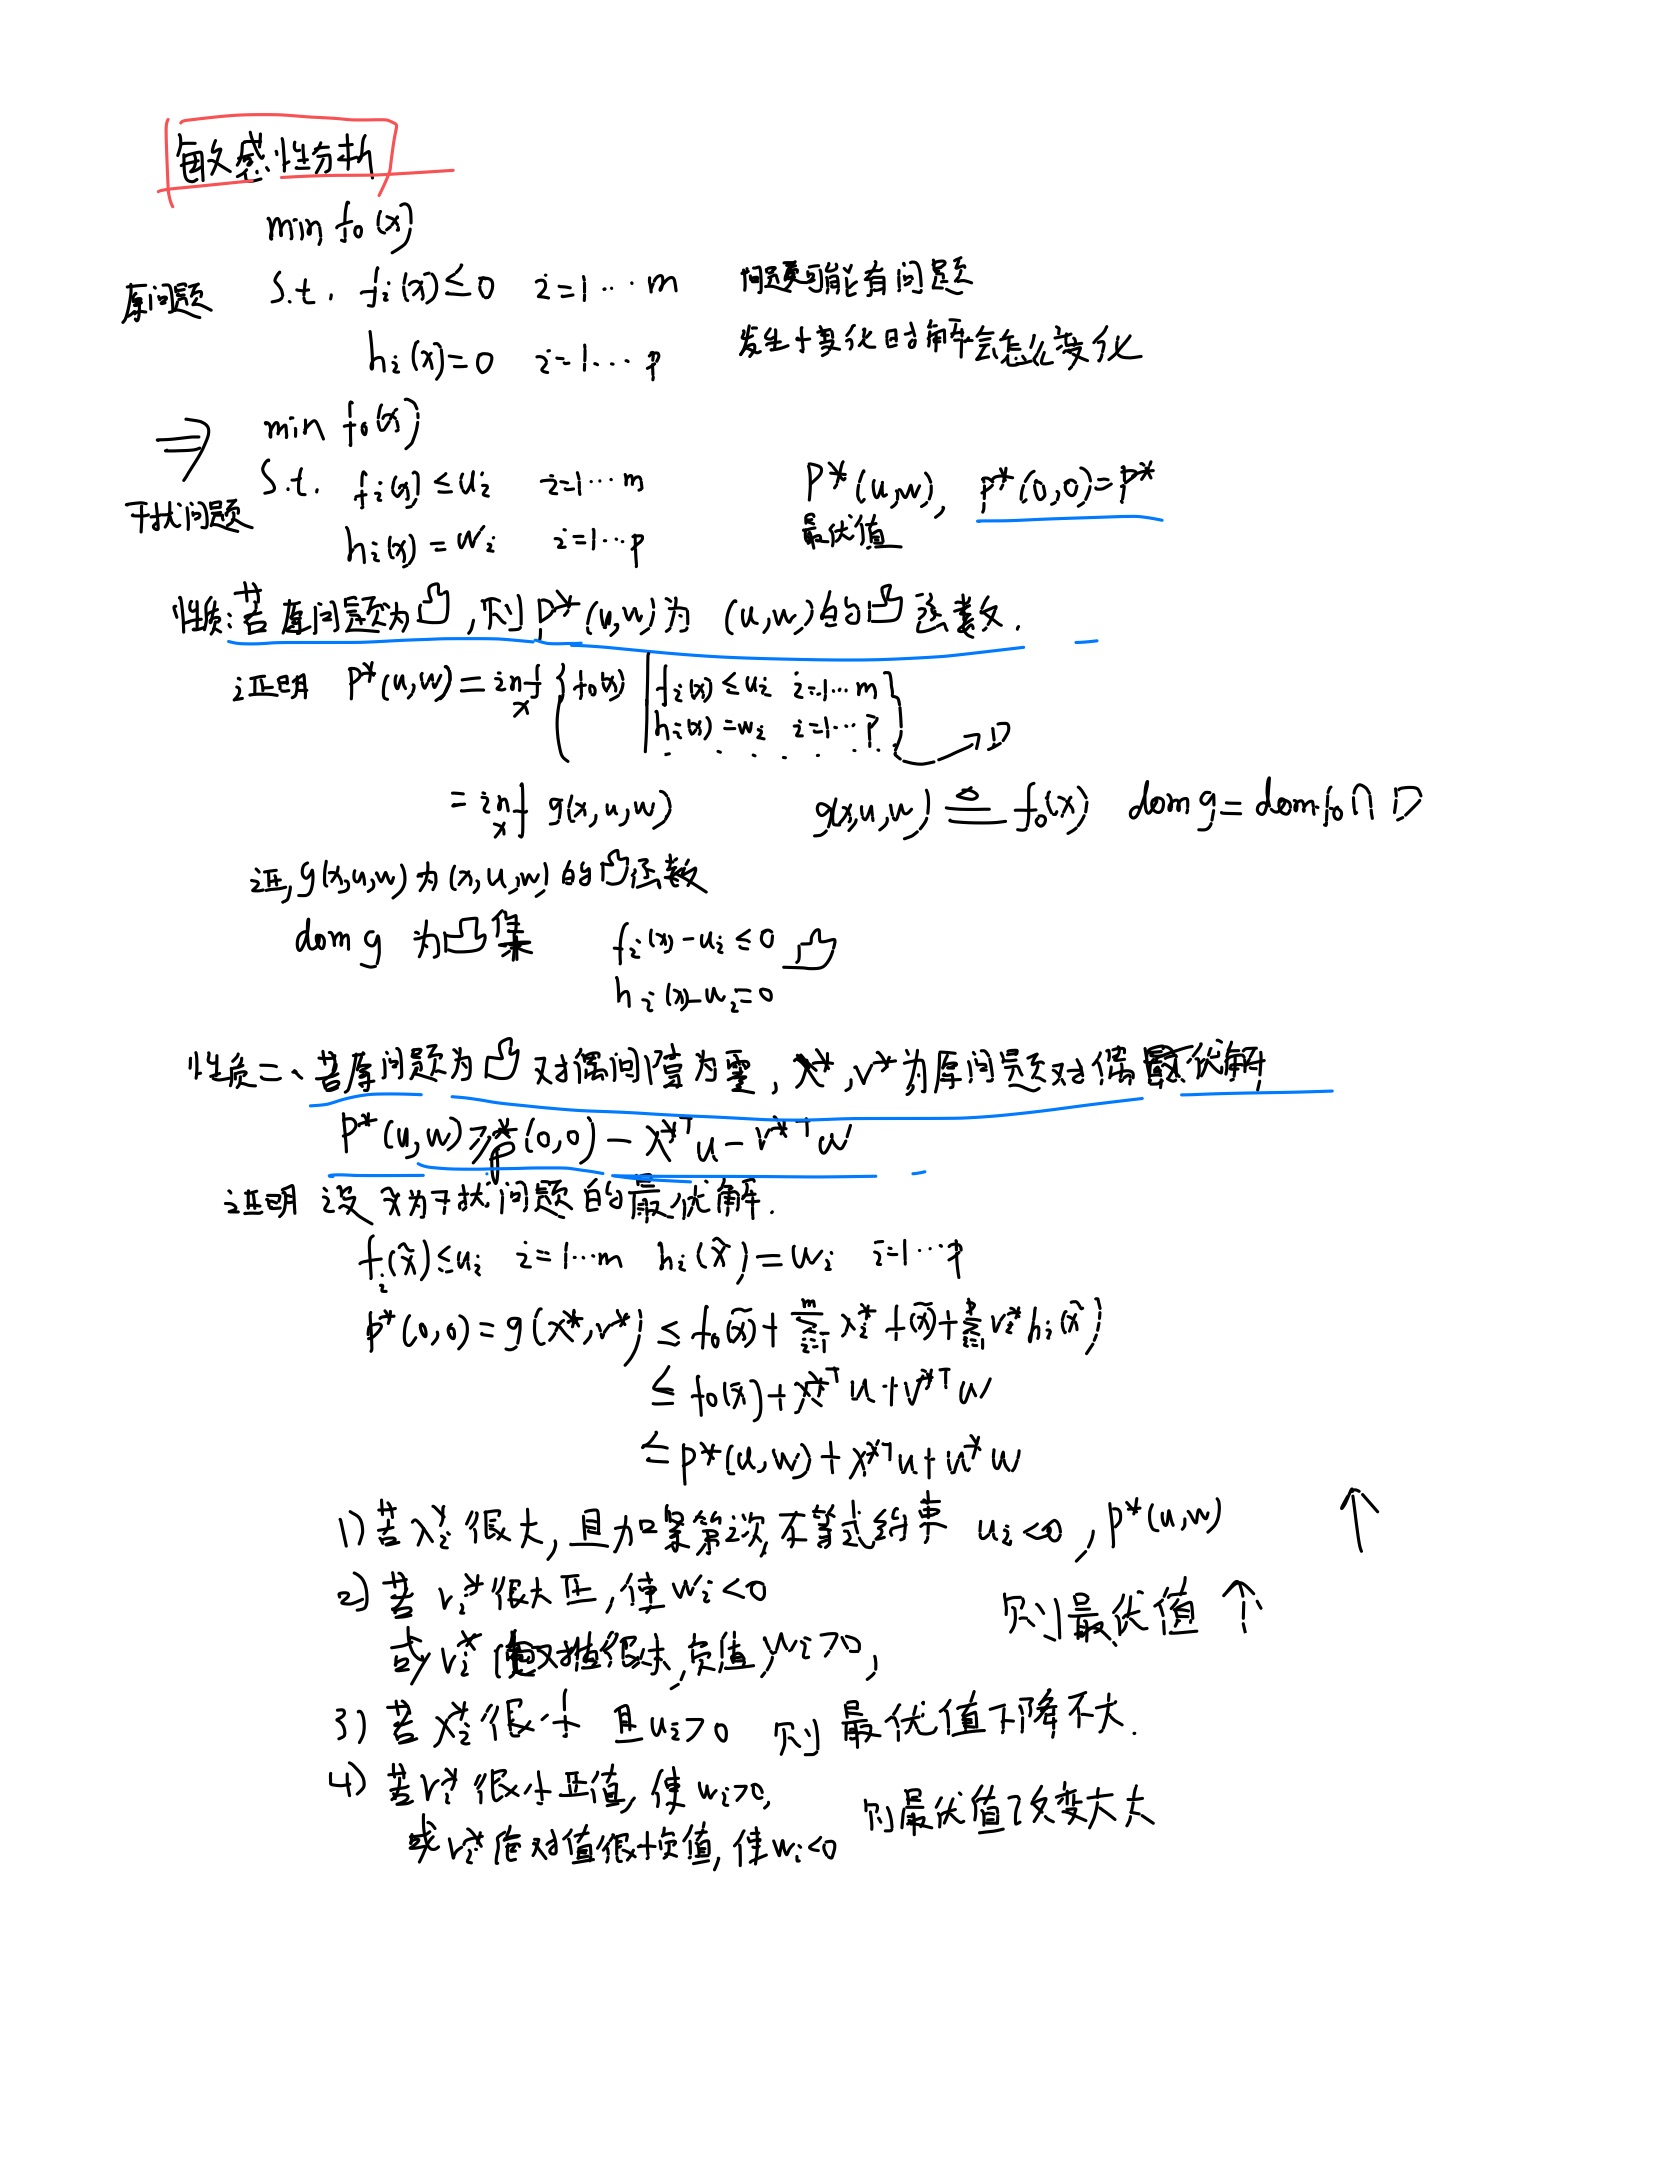 敏感性分析
min f₀(x)
原问题 s.t. fᵢ(x)≤0 i=1···m 问题可能有问题
hᵢ(x)=0 i=1···p 发生小变化时解会怎么变化
⇒ min f₀(x)
干扰问题 s.t. fᵢ(x)≤uᵢ i=1···m P*(u,w), p*(0,0)=p*
hᵢ(x)=wᵢ i=1···p 最优值
性质:若原问题为凸,则p*(u,w)为(u,w)的凸函数.
证明 p*(u,w)=inf_x {f₀(x) | fᵢ(x)≤uᵢ i=1···m
hᵢ(x)=wᵢ i=1···p} → D
=inf_x g(x,u,w) g(x,u,w)≜f₀(x) dom g=dom f₀∩D
证,g(x,u,w)为(x,u,w)的凸函数
dom g 为凸集 fᵢ(x)-uᵢ≤0 凸
hᵢ(x)-uᵢ=0
性质二、若原问题为凸 对偶间隙为零, λ*,v*为原问题对偶最优解
p*(u,w)≥p*(0,0)-λ*ᵀu-v*ᵀw
证明 设x̃为干扰问题的最优解.
fᵢ(x̃)≤uᵢ i=1···m hᵢ(x̃)=wᵢ i=1···p
p*(0,0)=g(λ*,v*)≤f₀(x̃)+∑ᵢ₌₁ᵐ λᵢ* f(x̃)+∑ᵢ₌₁ᵖ vᵢ* hᵢ(x̃)
≤f₀(x̃)+λ*ᵀu+v*ᵀw
≤p*(u,w)+λ*ᵀu+u*w
1) 若λᵢ*很大,且加紧第i次不等式约束 uᵢ<0,p*(u,w) ↑
2) 若vᵢ*很大正,使wᵢ<0
或vᵢ*绝对值很大,负值,wᵢ>0, 则最优值↑
3) 若λᵢ*很小 且uᵢ>0 则最优值下降不大.
4) 若vᵢ*很小正值,使wᵢ>0,
或vᵢ*绝对值很小负值,使wᵢ<0 则最优值改变大大